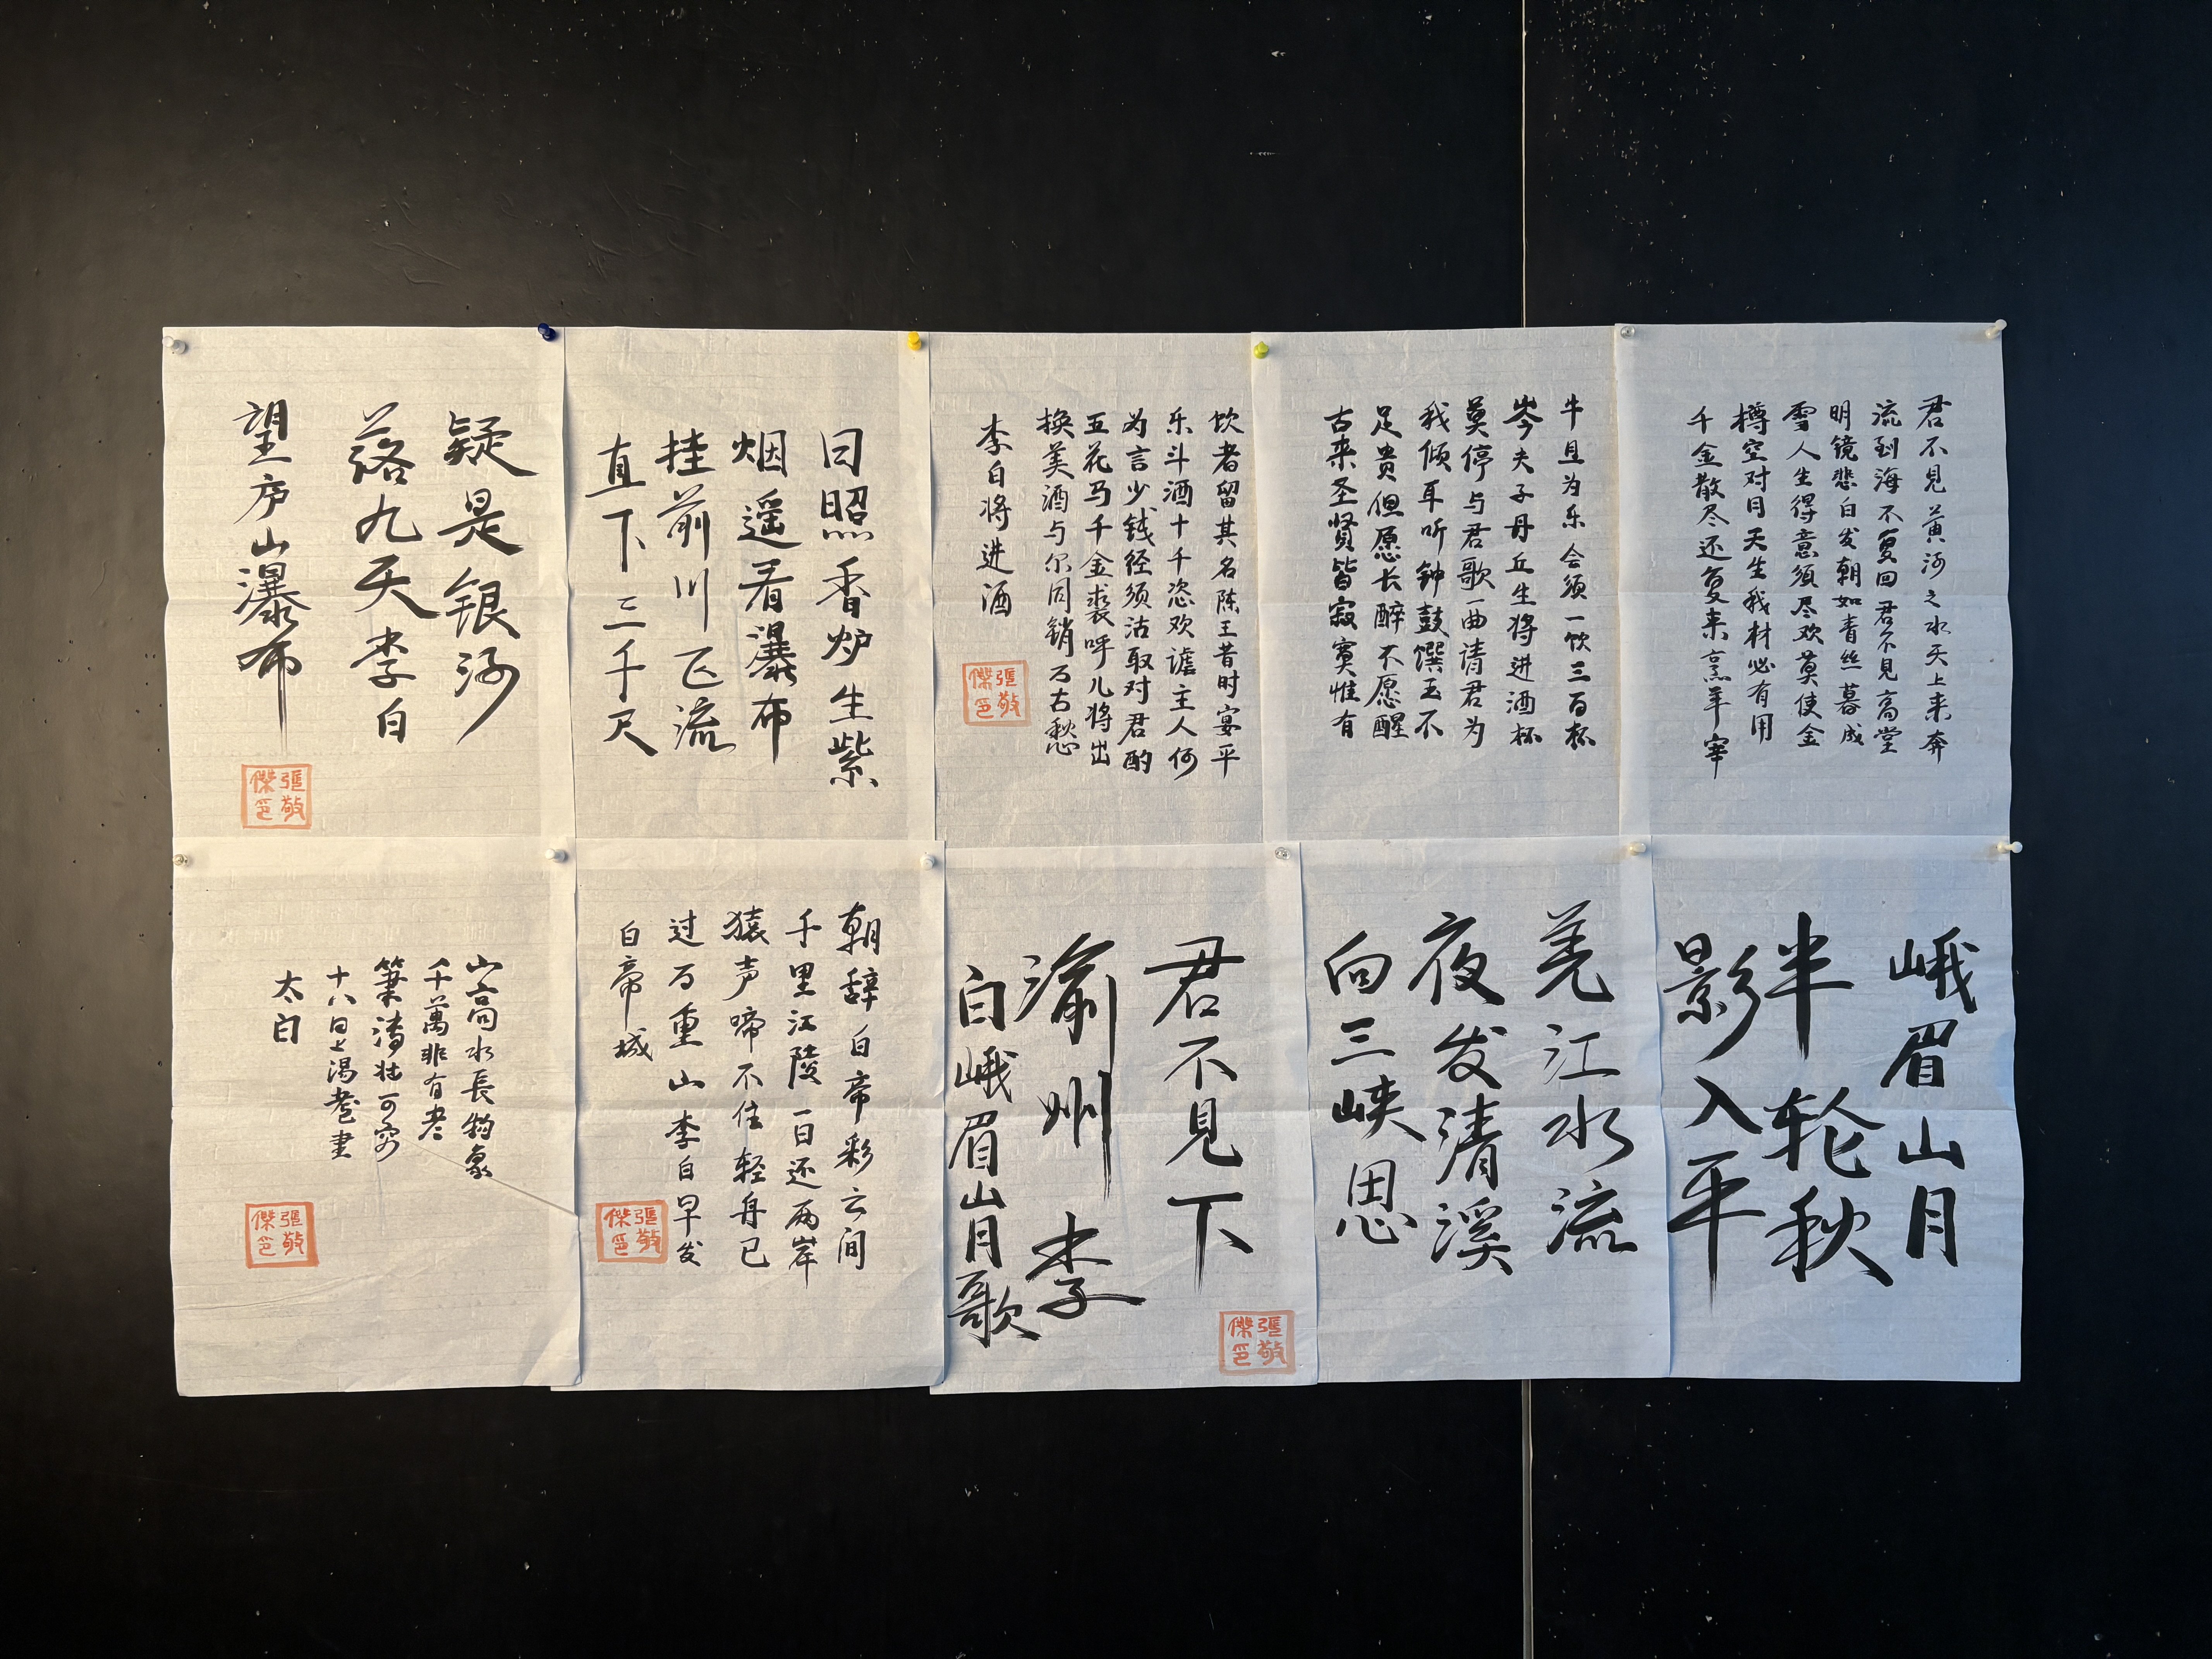 君不见黄河之水天上来奔
流到海不复回君不见高堂
明镜悲白发朝如青丝暮成
雪人生得意须尽欢莫使金
樽空对月天生我材必有用
千金散尽还复来烹羊宰
牛且为乐会须一饮三百杯
岑夫子丹丘生将进酒杯
莫停与君歌一曲请君为
我倾耳听钟鼓馔玉不
足贵但愿长醉不愿醒
古来圣贤皆寂寞惟有
饮者留其名陈王昔时宴平
乐斗酒十千恣欢谑主人何
为言少钱径须沽取对君酌
五花马千金裘呼儿将出
换美酒与尔同销万古愁
李白将进酒
張敬
傑印
日照香炉生紫
烟遥看瀑布
挂前川飞流
直下三千尺
疑是银河
落九天李白
望庐山瀑布
張敬
傑印
峨眉山月
半轮秋
影入平
羌江水流
夜发清溪
向三峡思
君不见下
渝州李
白峨眉山月歌
張敬
傑印
朝辞白帝彩云间
千里江陵一日还两岸
猿声啼不住轻舟已
过万重山李白早发
白帝城
張敬
傑印
山高水長物象
千萬非有老
筆清壯可窮
十八日上陽臺書
太白
張敬
傑印